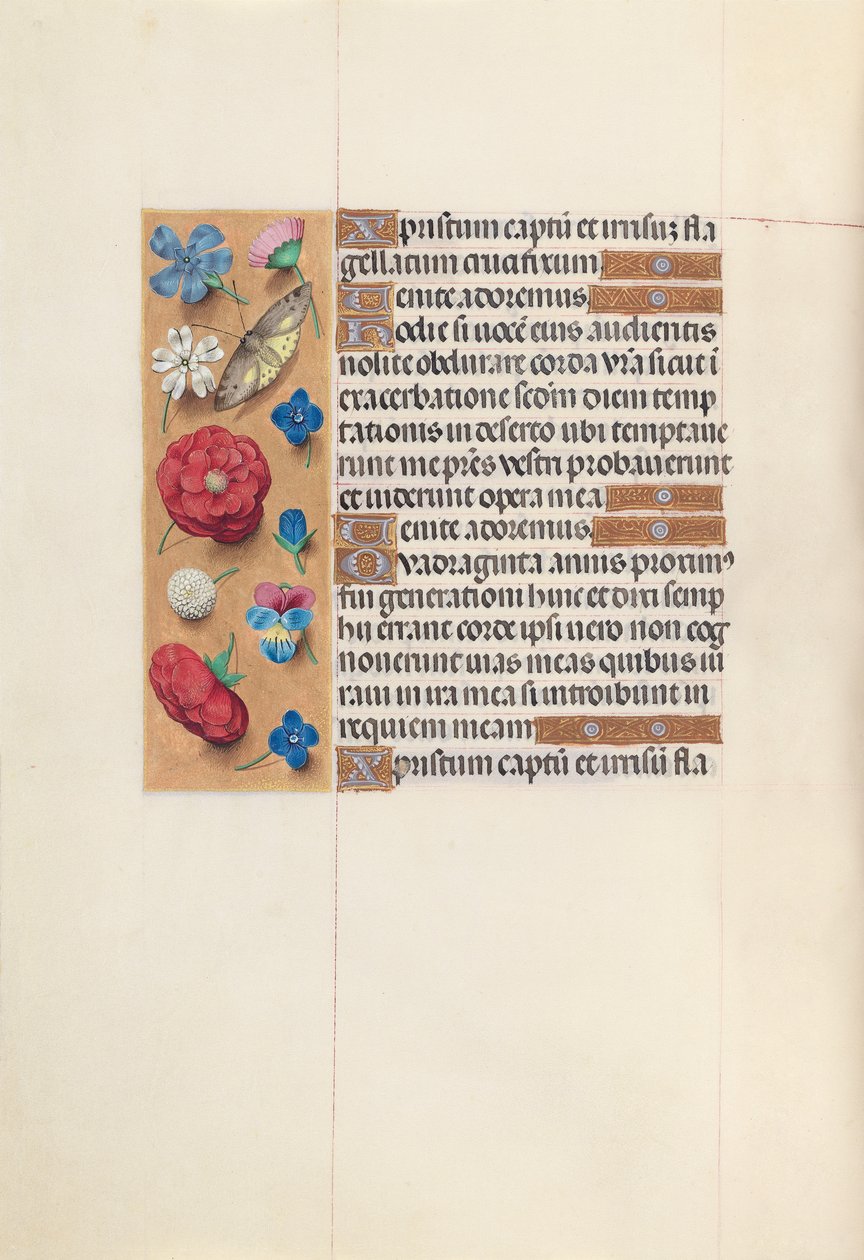 Xpristum captū et irrisuʒ fla
gellatum crucifixum.
Venite adoremus.
Hodie si vocē eius audieritis
nolite obdurare corda vr̄a sicut ī
exacerbatione scd̄m diem temp
tationis in deserto ubi temptaue
runt me pr̄es vestri probauerunt
et uiderunt opera mea.
Venite adoremus.
Quadraginta annis proximꝰ
fui generationi huic et dixi semp
hij errant corde ipsi uero non cog
nouerunt uias meas quibus iu
raui in ira mea si introibunt in
requiem meam
Xpristum captū et irrisū fla